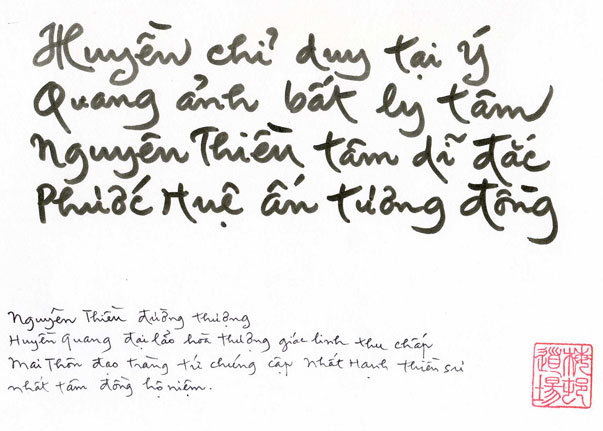 Huyền chỉ duy tại ý
Quang ảnh bất ly tâm
Nguyên Thiền tâm dĩ đắc
Phước Huệ ấn tương đồng
Nguyên Thiền đường thượng
Huyền Quang đại lão hoà thượng giác linh thu chấp
Mai Thôn đạo tràng tứ chúng cập Nhất Hạnh thiền sư
nhất tâm đồng hộ niệm.
梅邨
道場